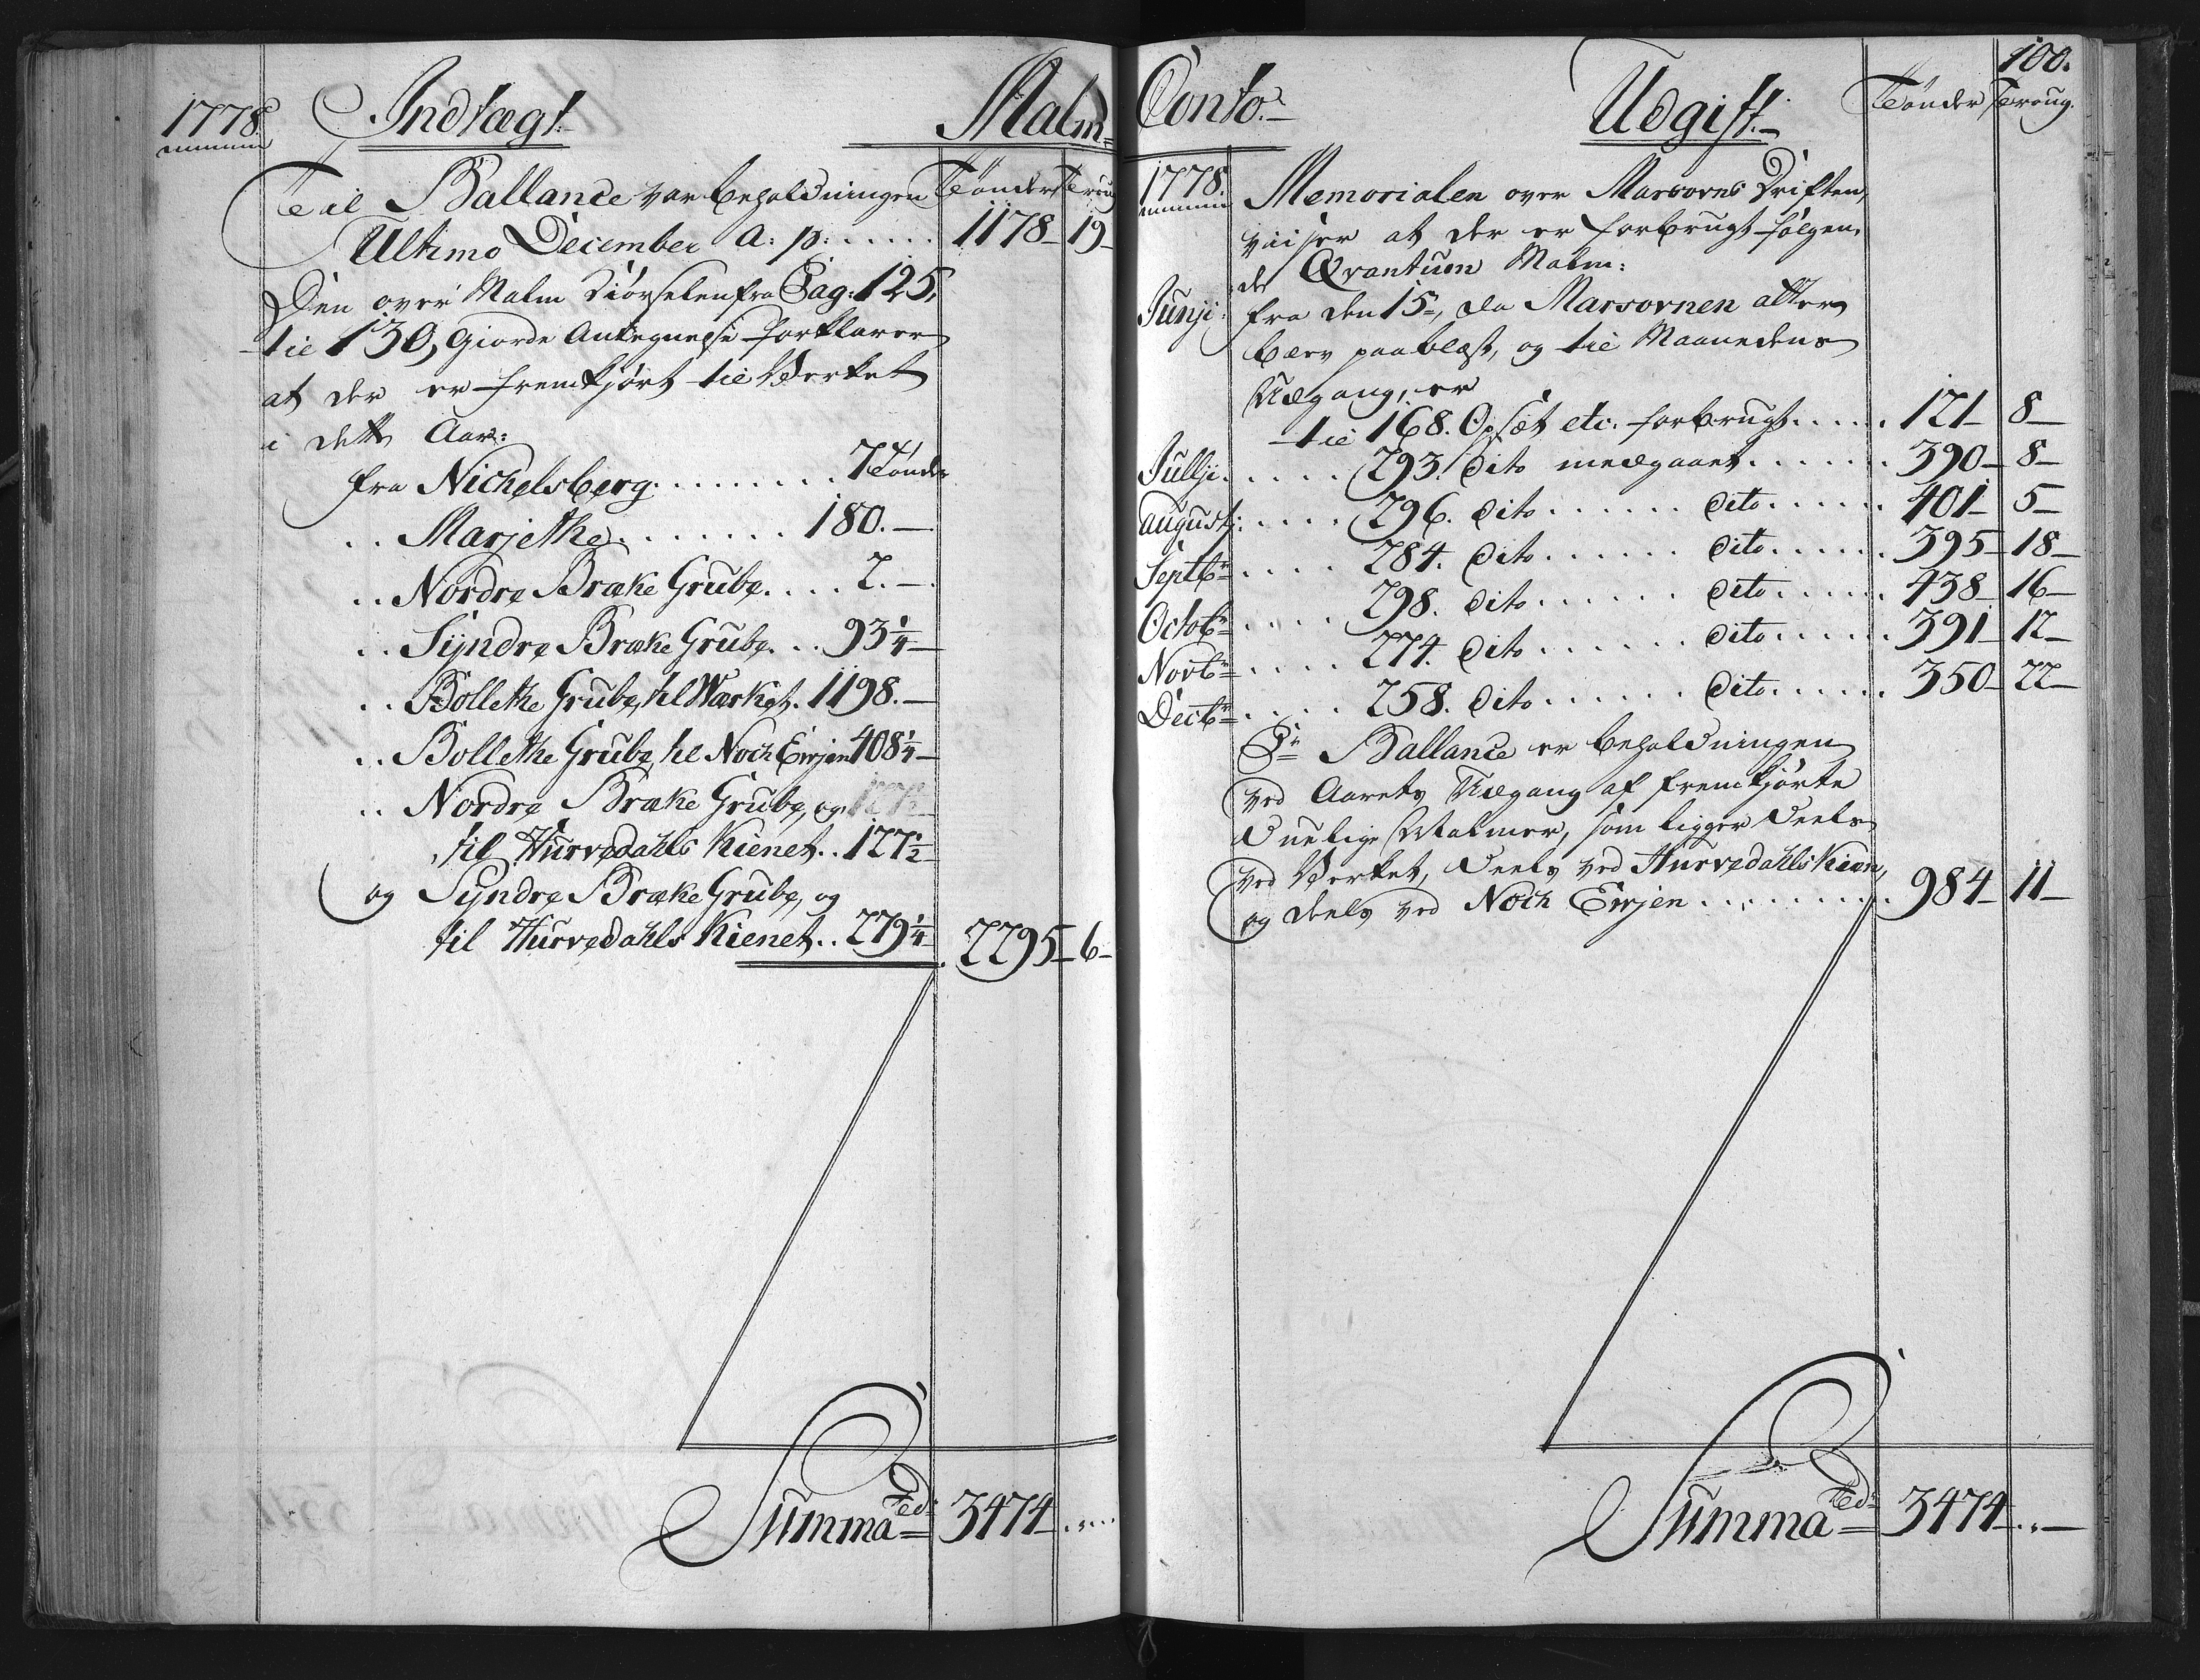 1778.
Indtægt.
Malm=
Til Ballance var beholdningen
Tönder
Troug
Ultimo December a: p: ..... 1178 19
Den over Malm Kiörselen fra Pag: 125,
til 130, giorde Antegnelse forklarer
at der er fremkjört til Verket
i dette Aar:
fra Nichelsberg ......... 7 Tönder
.. Marjethe ........ 180.—
.. Nordre Bræke Grube .... 2.—
.. Syndre Bræke Grube ... 93 1/4
.. Bollethe Grube, til Wærket. 1198.—
.. Bollethe Grube, til Noch Eirjen 408 1/4
.. Nordre Bræke Grube, og
til Hurvedahls Kienet .. 127 1/2
og Syndre Bræke Grube, og
til Hurvedahls Kienet .. 279 1/4 2295 6
Summa Tdr 3474 ....
100.
Conto.
Udgift.
Tönder Troug.
1778.
Memorialen over Marsovns Driften,
viiser at der er forbrugt fölgen-
de Qvantum Malm:
Junji: fra den 15de, da Marsovnen atter
blev paablæst, og til Maanedens
Udgang, er
til 168. Opsæt etc. forbrugt ..... 121 8
Julji ..... 293. dito medgaaet ....... 390 8
Augustj: .... 296. dito ...... dito ...... 401 5
Septbr .... 284. dito ...... dito ...... 395 18
Octobr .... 298. dito ...... dito ...... 438 16
Novbr .... 274. dito ...... dito ...... 391 12
Decbr .... 258. dito ...... dito ...... 350 22
Pr Ballance er beholdningen
ved Aarets Udgang af fremkjörte
duelige Malmer, som ligger deels
ved Verket, deels ved Hurvedahls Kiæn,
og deels ved Noch Eirjen .......... 984 11
Summa Tdr 3474 ..